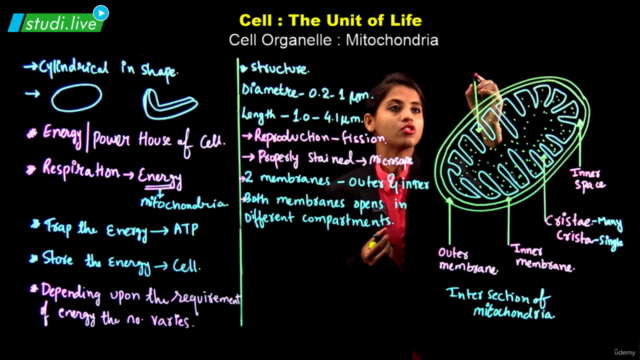 studi.live
Cell : The Unit of Life
Cell Organelle : Mitochondria
→ Cylindrical in shape.
→
* Energy/Power House of Cell.
* Respiration → Energy
↓
mitochondria
* Trap the Energy → ATP
* Store the Energy → Cell.
* Depending upon the requirement
of energy the no. varies.
* Structure
Diametre - 0.2 - 1 μm.
Length - 1.0 - 4.1 μm.
→ Reproduction - fission.
→ Properly Stained → microscope
→ 2 membranes - Outer & inner
Both membranes opens in
different compartments.
Inner
Space
Cristae - Many
Crista - Single
Outer
membrane.
Inner
membrane.
Inter section of
mitochondria
ûdemy